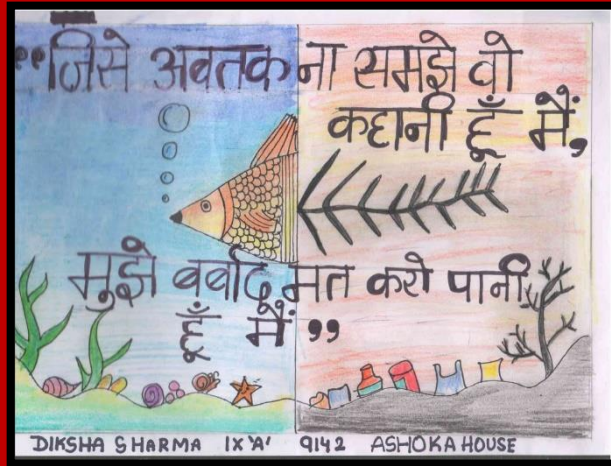 “जिसे अबतक ना समझे वो
कहानी हूँ मैं,
मुझे बर्बाद मत करो पानी
हूँ मैं”
DIKSHA SHARMA IX 'A' 9142 ASHOKA HOUSE